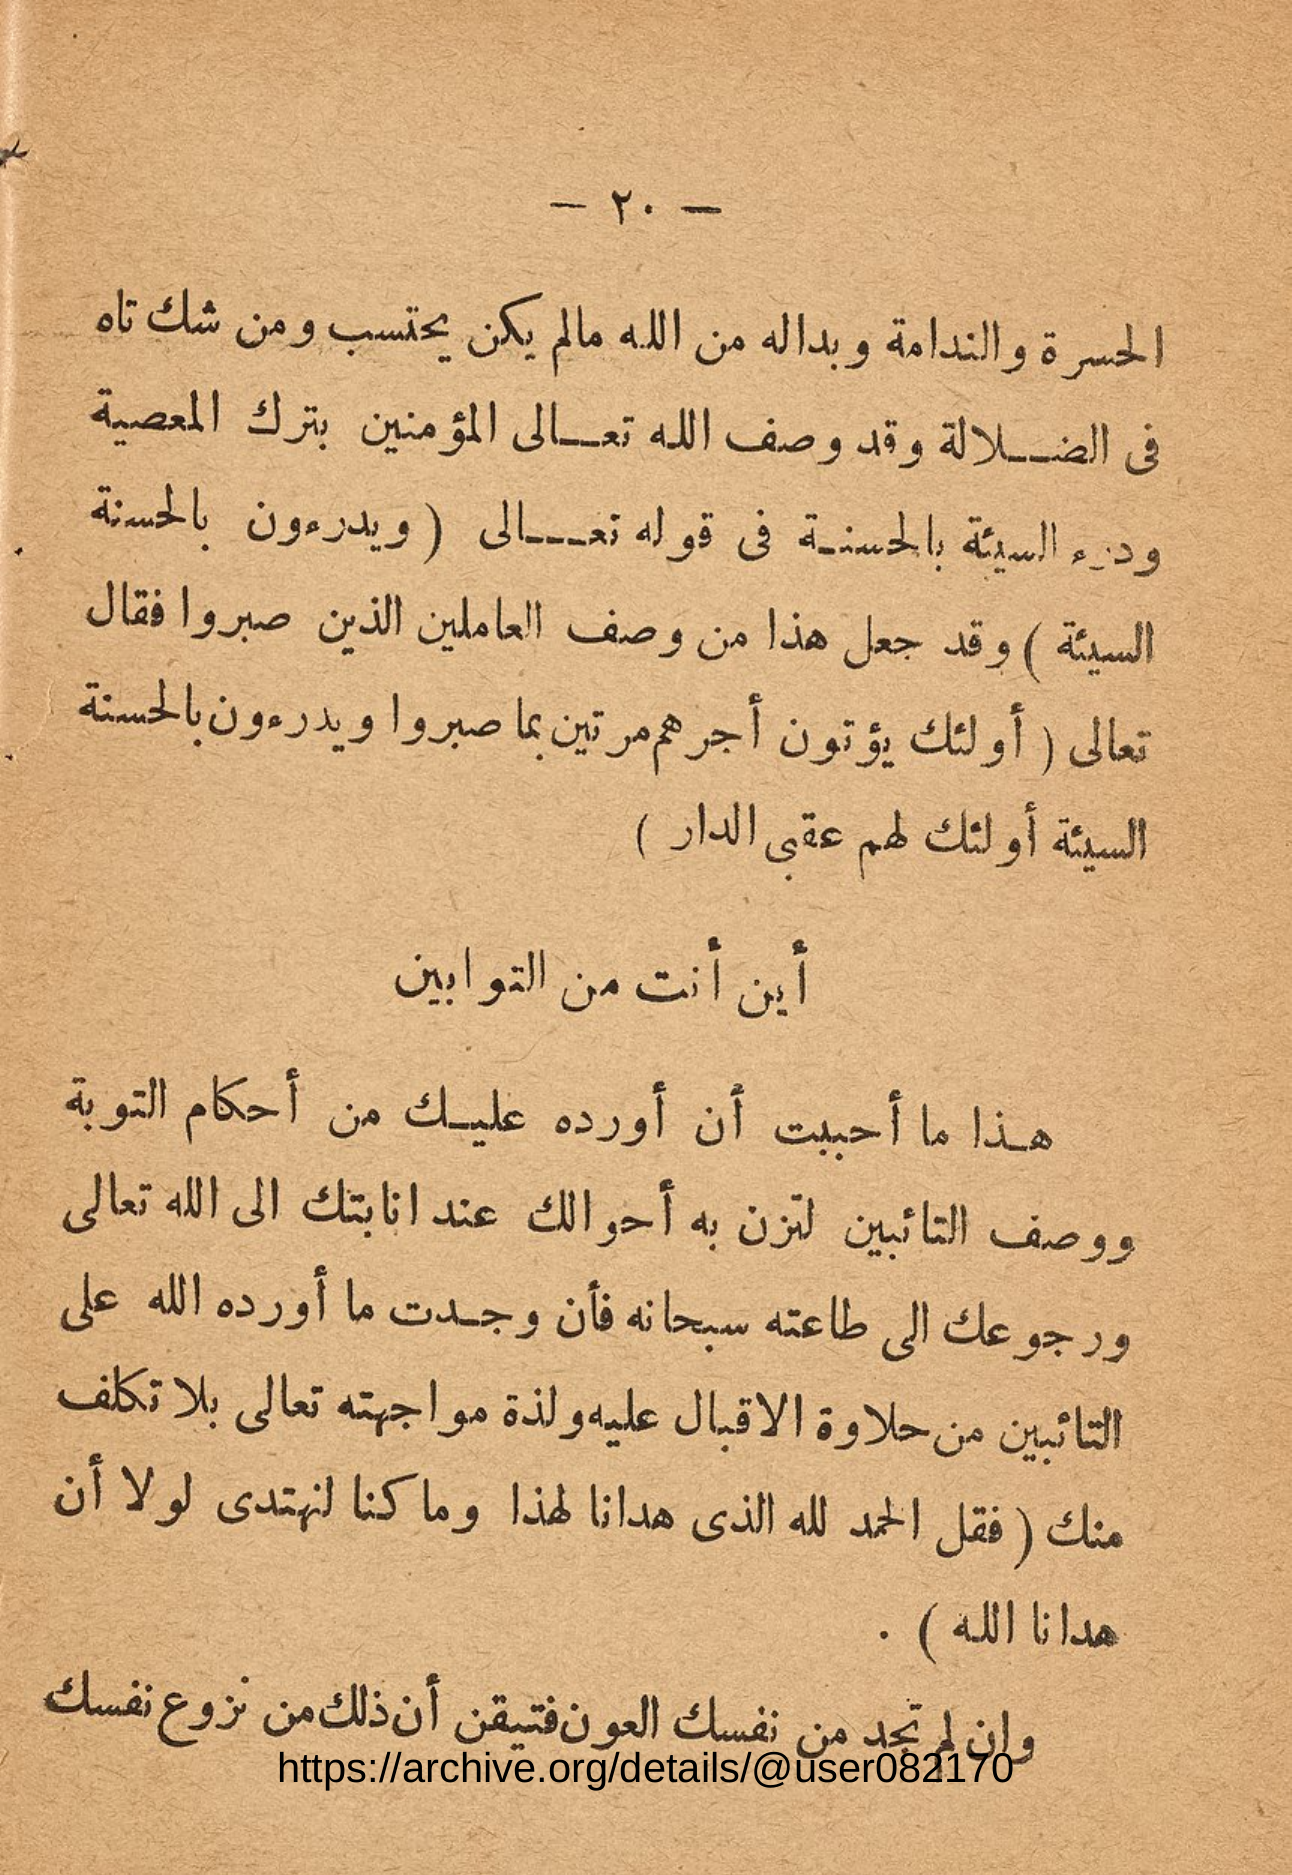 — ٢٠ —
الحسرة والندامة وبداله من الله مالم يكن يحتسب ومن شك تاه
فى الضــلالة وقد وصف الله تعــالى المؤمنين بترك المعصية
ودرء السيئة بالحسنـة فى قوله تعـــالى ( ويدرءون بالحسنة
السيئة ) وقد جعل هذا من وصف العاملين الذين صبروا فقال
تعالى ( أولئك يؤتون أجرهم مرتين بما صبروا ويدرءون بالحسنة
السيئة أولئك لهم عقبى الدار )
أين أنت من التوابين
هـذا ما أحببت أن أورده عليـك من أحكام التوبة
ووصف التائبين لتزن به أحوالك عند انابتك الى الله تعالى
ورجوعك الى طاعته سبحانه فأن وجـدت ما أورده الله على
التائبين من حلاوة الاقبال عليه ولذة مواجهته تعالى بلا تكلف
منك ( فقل الحمد لله الذى هدانا لهذا وما كنا لنهتدى لولا أن
هدانا الله ) .
وان لم تجد من نفسك العون فتيقن أن ذلك من نزوع نفسك
https://archive.org/details/@user082170